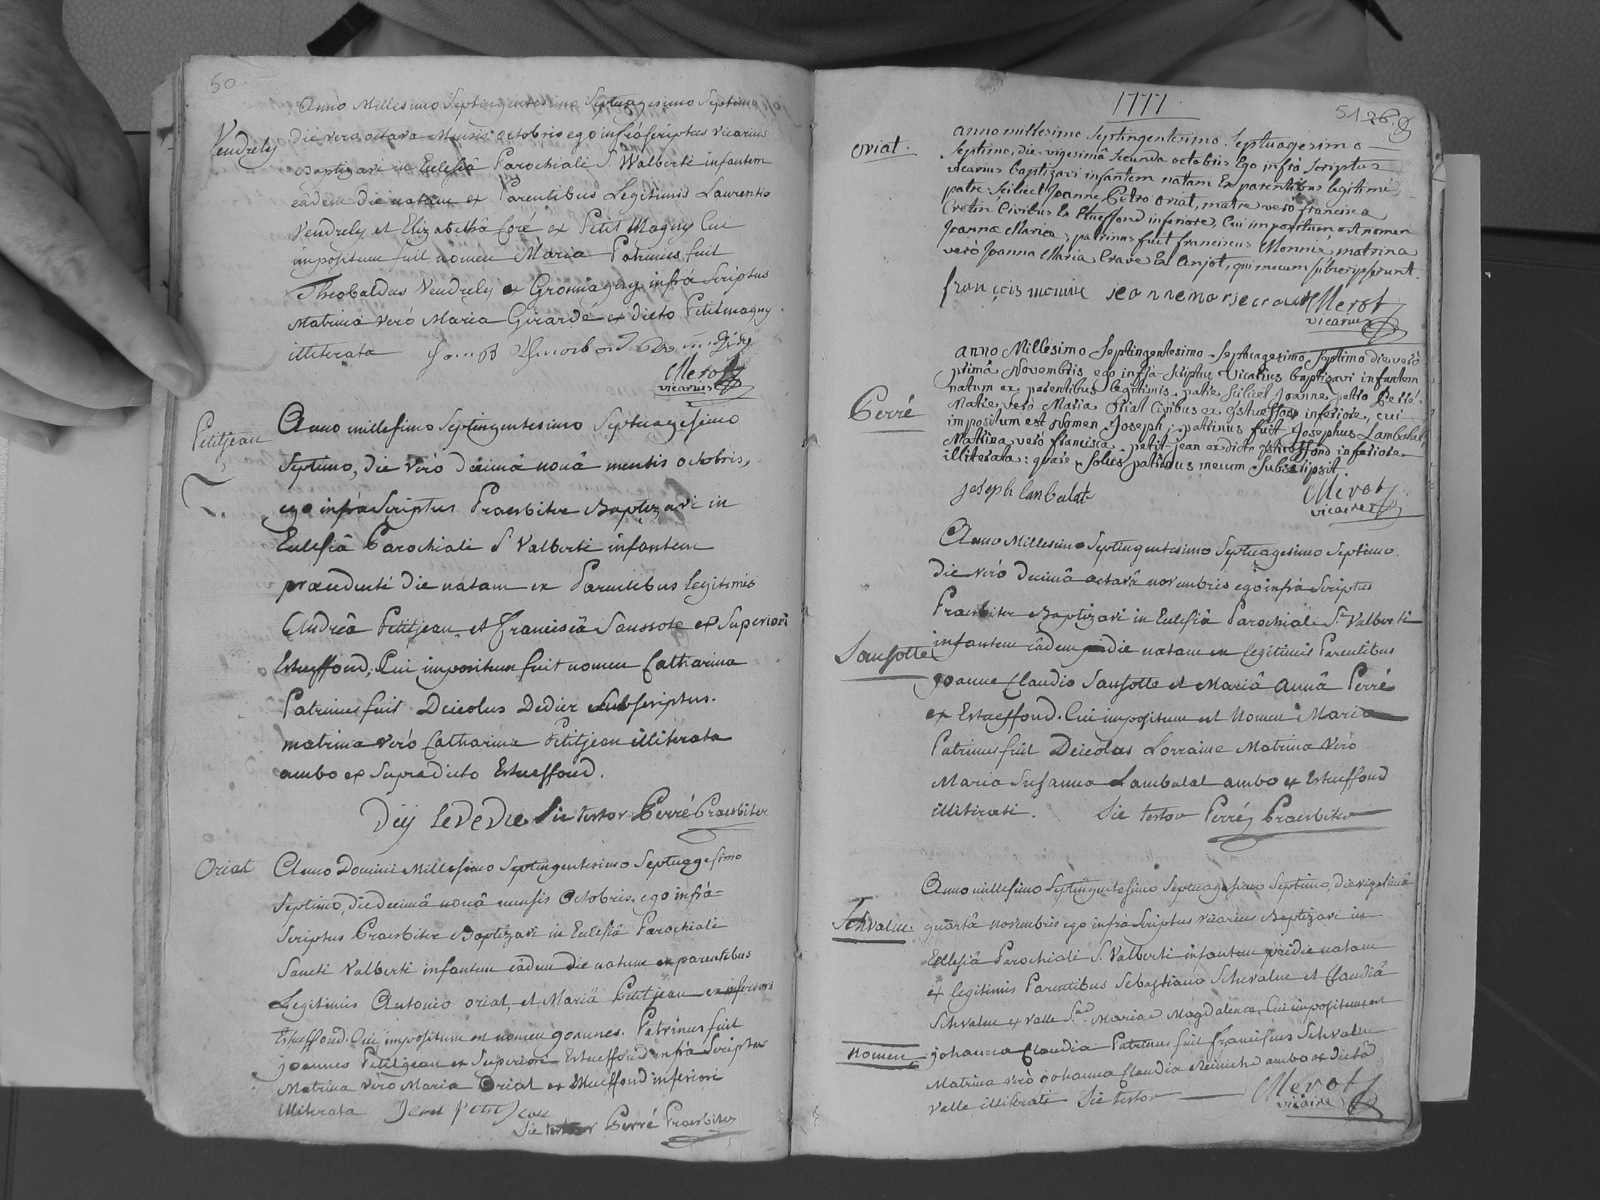 50
Anno Millesimo Septingentesimo Septuagesimo Septimo
Vendrely
die vero octava Mensis octobris ego infrà scriptus vicarius
baptizavi in Eclesiâ Parochiali S. Walberti infantem
eadem die natam ex Parentibus Legitimis Laurentio
Vendrely et Elizabetha Coré ex Petit Magny Cui
impositum fuit nomen Maria Patrinus fuit
Theobaldus Vendrely ex Gromagny infrà Scriptus
Matrina verò Maria Girarde ex dicto Petitmagny
illiterata
Merot
vicarius
Petitjean
Anno millesimo Septingentesimo Septuagesimo
Septimo, die verò decimâ nonâ mensis octobris,
ego infrà Scriptus Praesbiter Baptizavi in
Eclesiâ Parochiali S Valberti infantem
praecedenti die natam ex Parentibus legitimis
Andreâ Petitjean et Franciscâ Saussote ex Superiori
Estueffond, Cui impositum fuit nomen Catharina
Patrinus fuit Deicolus Dedier subscriptus.
matrina verò Catharina Petitjean illiterata
ambo ex Supradicto Estueffond.
Deij le deDie Sic testor Perré Praesbiter
Oriat
Anno Domini Millesimo Septingentesimo Septuagesimo
Septimo, die decimâ nonâ mensis Octobris, ego infrà=
Scriptus Praesbiter Baptizavi in Eclesiâ Parochiali
Sancti Valberti infantem eâdem die natum ex parentibus
Legitimis Antonio oriat, et Mariâ Petitjean ex inferiori
Estueffond. Cui impositum est nomen joannes. Patrinus fuit
joannes Petitjean ex Superiori Estueffond infrà Scriptus
Matrina verò Maria Oriat ex Estueffond inferiori
illiterata Jean Petit Jean
Sic testor Perré Praesbiter
1777.
51 26.
oriat.
anno millesimo Septingentesimo Septuagesimo
Septimo, die vigesimâ Secunda octobris Ego infrà Scriptus
vicarius baptizavi infantem natam Ex parentibus legitimis
patre Scilicet Joanne petro oriat, matre verò francisca
Cretin Civibus Ex Etueffond inferiore, Cui impositum est nomen
Joanna Maria, patrinus fuit franciscus Monnié, matrina
verò Joanna Maria Crave Ex Anjot, qui mecum subscripserunt.
françois monnie jeanne marie crave Merot
vicarius
Perré
anno Millesimo Septingentesimo Septuagesimo Septimo die verò
prima Novembris ego infrà Scriptus Vicarius baptizavi infantem
natum ex parentibus legitimis patre Scilicet Joanne petro Perré
Matre verò Maria Oriat Civibus ex Estueffond inferiore, cui
impositum est Nomen Joseph, patrinus fuit Josephus Lambalat
Matrina verò francisca petit jean ex dicto Estueffond inferiore
illiterata: quare Solus patrinus mecum Subscripsit
joseph lanbalat
Merot
vicaire
Anno Millesimo Septingentesimo Septuagesimo Septimo.
die verò Decimâ octavâ novembris ego infrà Scriptus
Praesbiter Baptizavi in Eclesiâ Parochiali S. Valberti
Sansotte
infantem eâdem die natam ex legitimis Parentibus
joanne Claudio Sansotte et Mariâ Annâ Perré
ex Estueffond. Cui impositum est Nomen Maria
Patrinus fuit Deicolas Lorraine Matrina Verò
Maria Susanna Lambalat ambo ex Estueffond
illiterati. Sic testor Perré Praesbiter
Anno millesimo Septingentesimo Septuagesimo Septimo, die vigesimâ
Schvalm.
quartâ novembris ego infrà Scriptus vicarius Baptizavi in
Ecclesiâ Parochiali S. Valberti infantem pridie natam
ex legitimis Parentibus Sebastiano Schvalm et Claudiâ
Schvalm ex valle S.ae Mariae Magdalenae. Cui impositum est
nomen johanna Claudia Patrinus fuit franciscus Schvalm
Matrina verò johanna Claudia Reiniche ambo ex dictâ
valle illiterati Sic testor
Merot
vicaire